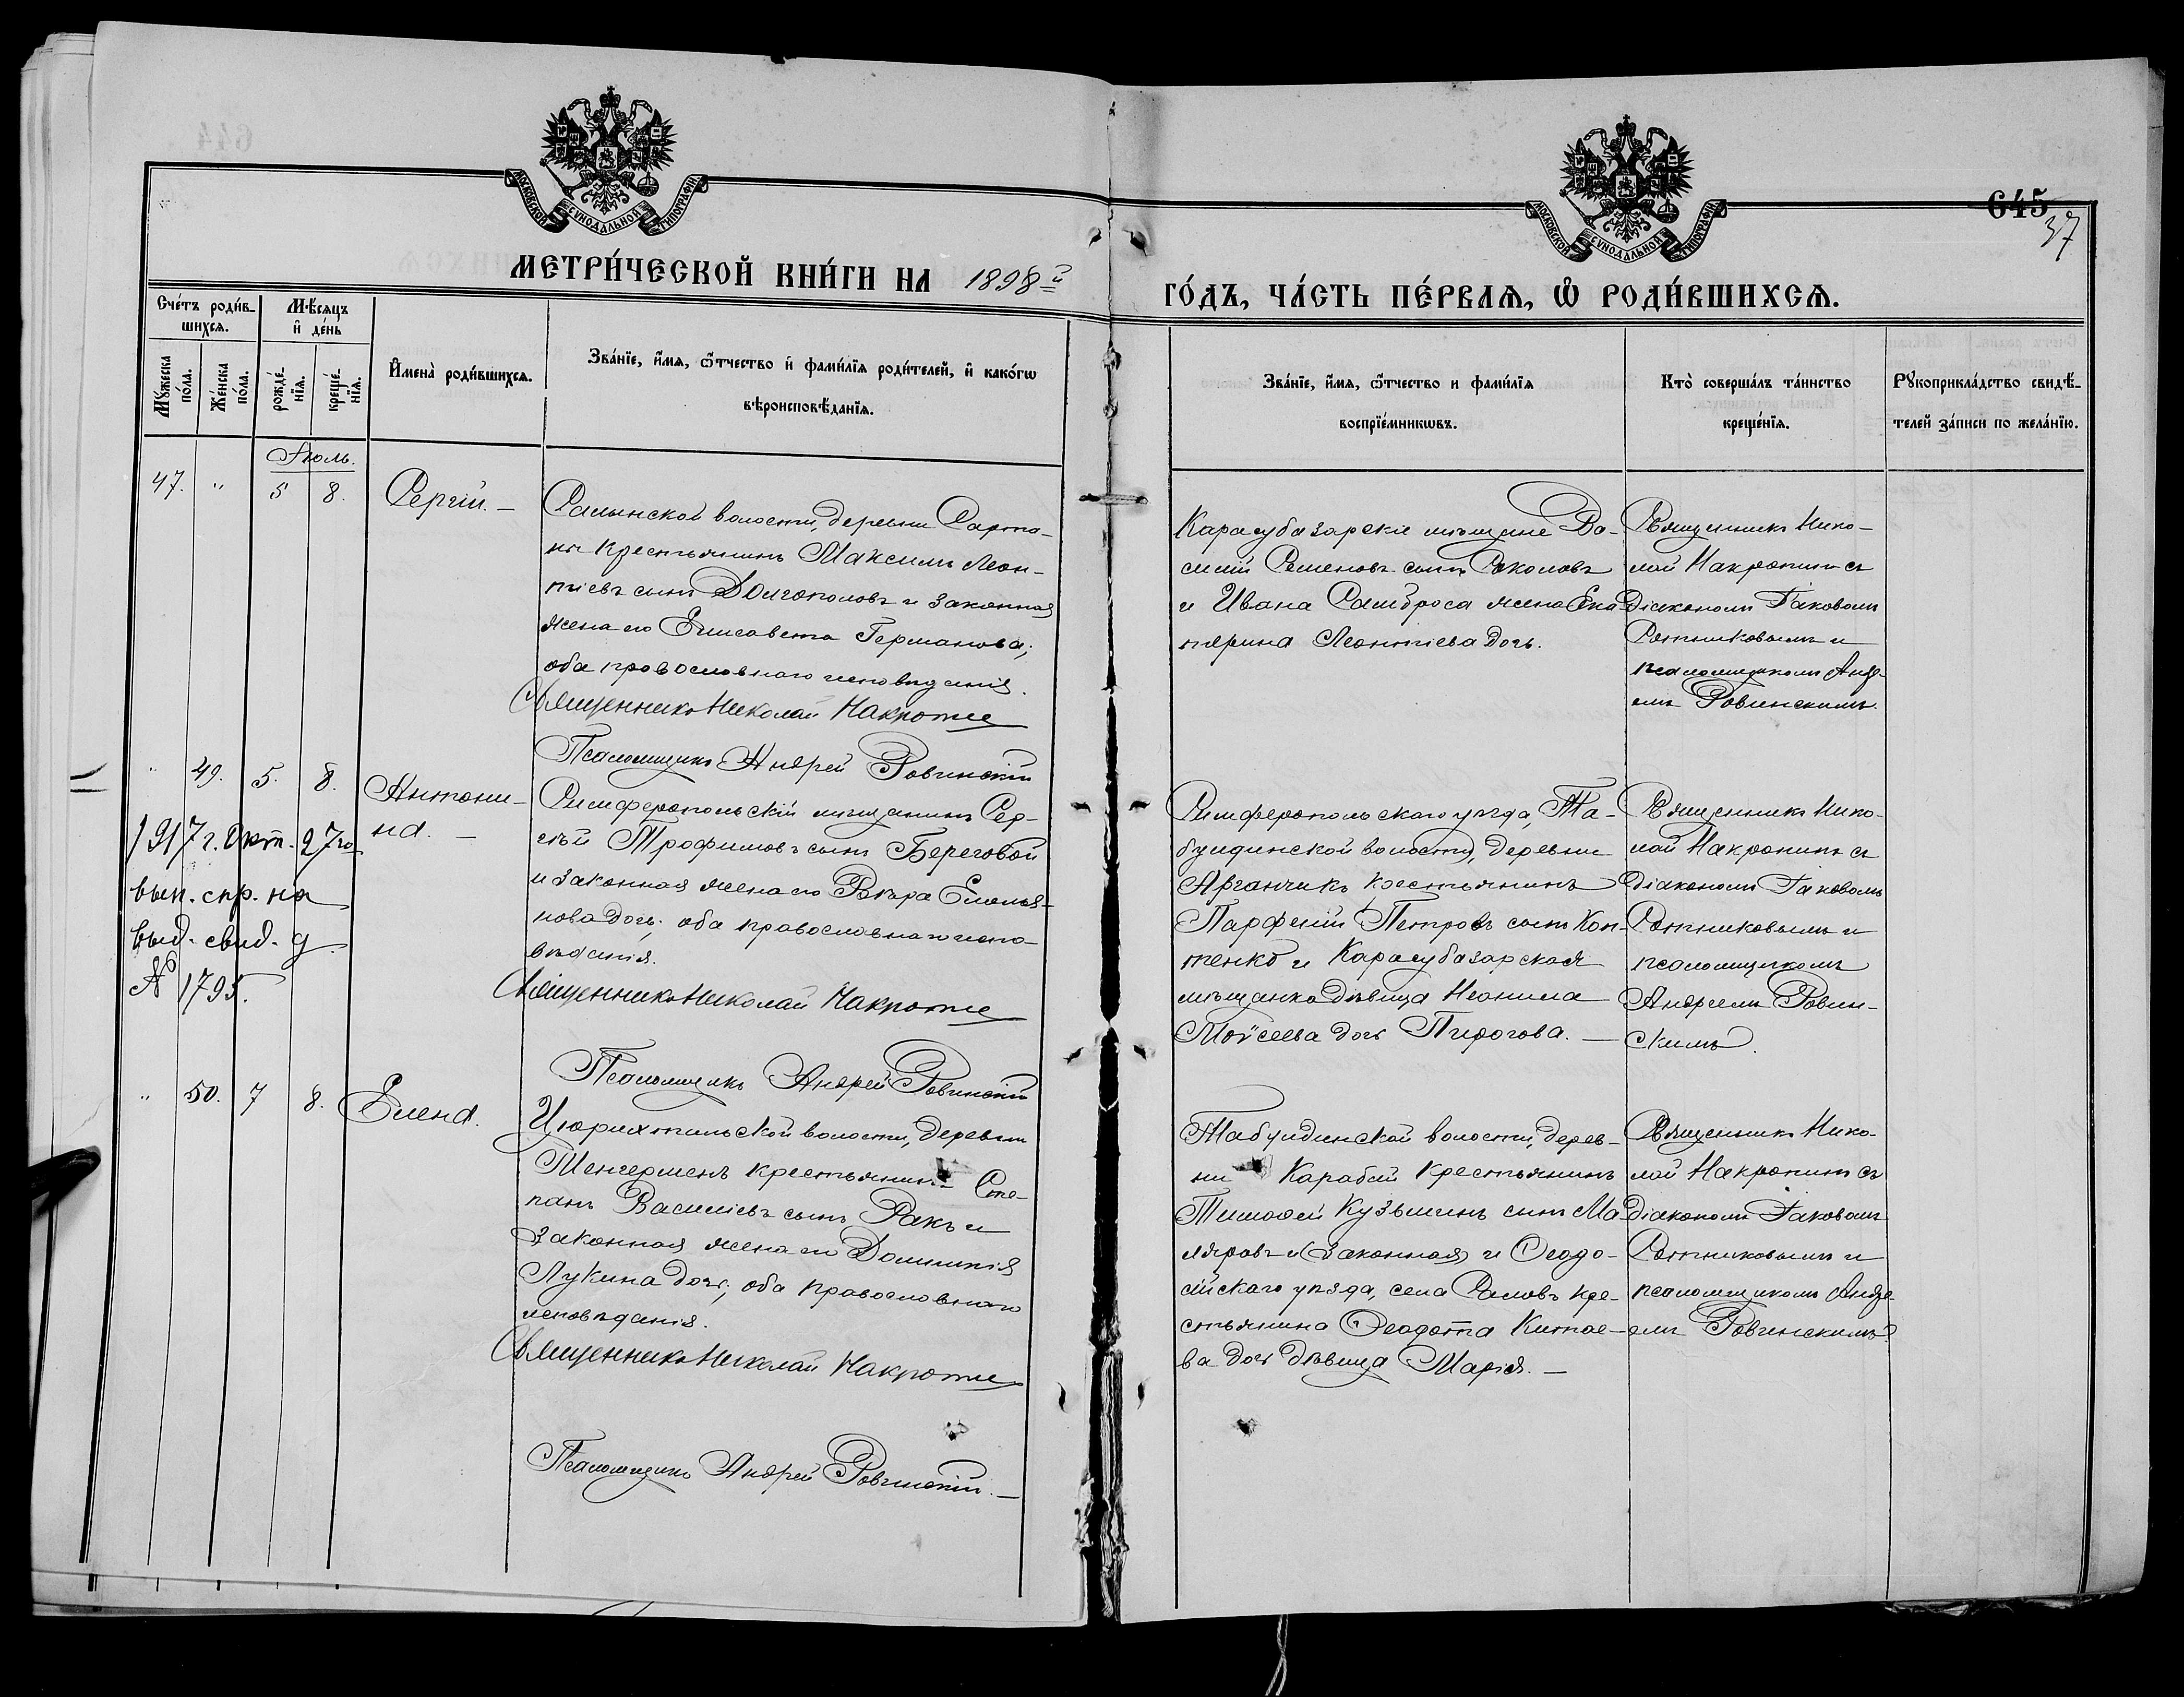 МОСКОВСКОЙ СѴНОДАЛЬНОЙ ТИПОГРАФІИ
МОСКОВСКОЙ СѴНОДАЛЬНОЙ ТИПОГРАФІИ
645
37
МЕТРИ́ЧЕСКОЙ КНИ́ГИ НА 1898й
ГО́ДЪ, ЧА́СТЬ ПЕ́РВАЯ, Ѡ РОДИ́ВШИХСЯ.
Сче́тъ роди́в-
шихся.
Мѣсяцъ
и де́нь
Мꙋ́жеска
по́ла.
Же́нска
по́ла.
рожде́-
нїя.
креще́-
нїя.
Имена̀ роди́вшихся.
Зва́нїе, и́мя, ѻ́тчество и фами́лїя роди́телей, и како́гѡ
вѣроисповѣданїя.
Зва́нїе, и́мя, ѻ́тчество и фами́лїя
воспрїе́мникѡвъ.
Кто̀ соверша́лъ та́инство
креще́нїя.
Рꙋкоприкла́дство свидѣ-
телей за́писи по жела́нїю.
Іюль.
47. " 5 8. Сергій. —
Салынской волости, деревни Сарто-
на крестьянинъ Максимъ Леон-
тіевъ сынъ Долгополовъ и законная
жена его Елисавета Германова;
оба православнаго исповѣданія.
Священникъ Николай Макропте
Псаломщикъ Андрей Ровинскій
Карасубазарскіе мѣщане Ва-
силій Семеновъ сынъ Соколовъ
и Ивана Самброса жена Ека
терина Леонтіева дочь.
Священникъ Нико-
лай Макропте съ
діакономъ Іаковомъ
Сотниковымъ и
псаломщикомъ Андре-
емъ Ровинскимъ.
" 49. 5. 8. Антони-
на. —
1917 г. Окт. 27го
вып. спр. на
выд. свид. д
№ 1795.
Симферопольскій мѣщанинъ Сер-
гѣй Трофимовъ сынъ Береговой
и законная жена его Вѣра Емелья-
нова дочь; оба православнаго испо-
вѣданія.
Священникъ Николай Макропте
Псаломщикъ Андрей Ровинскій
Симферопольскаго уѣзда, Та-
булдинской волости, деревни
Арганчикъ крестьянинъ
Парфеній Петровъ сынъ Коп-
тенко и Карасубазарская
мѣщанка дѣвица Неонила
Моѵсеева дочь Пирогова. —
Священникъ Нико-
лай Макропте съ
діакономъ Іаковомъ
Сотниковымъ и
псаломщикомъ
Андреемъ Ровин-
скимъ.
" 50. 7 8. Елена.
Цюрихтальской волости, деревни
Менгерменъ крестьянинъ Сте-
панъ Василіевъ сынъ Ракъ и
законная жена его Домникія
Лукина дочь; оба православнаго
исповѣданія.
Священникъ Николай Макропте
Псаломщикъ Андрей Ровинскій. —
Табулдинской волости, дерев-
ни Карабай крестьянинъ
Тимофей Кузьминъ сынъ Ма
ляровъ и (законная) и Ѳеодо-
сійскаго уѣзда, села Саловъ кре-
стьянина Ѳеодота Китае-
ва дочь дѣвица Марія. —
Священникъ Нико-
лай Макропте съ
діакономъ Іаковомъ
Сотниковымъ и
псаломщикомъ Андре
емъ Ровинскимъ.